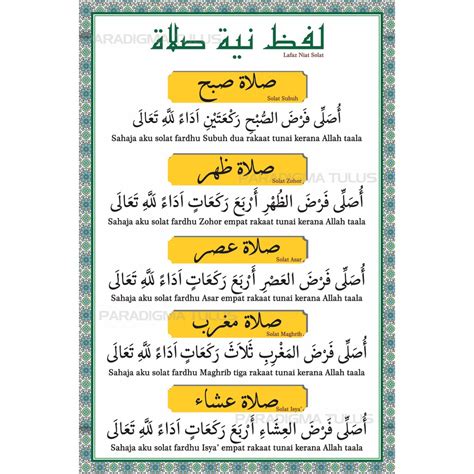 PARADIGMA TULUS
لفظ نية صلاة
Lafaz Niat Solat
صلاة صبح
Solat Subuh
أُصَلِّى فَرْضَ الصُّبْحِ رَكْعَتَيْنِ اَدَاءً لِلَّهِ تَعَالَى
Sahaja aku solat fardhu Subuh dua rakaat tunai kerana Allah taala
صلاة ظهر
Solat Zohor
PARADIGMA TULUS
أُصَلِّى فَرْضَ الظُّهْرِ أَرْبَعَ رَكَعَاتٍ اَدَاءً لِلَّهِ تَعَالَى
Sahaja aku solat fardhu Zohor empat rakaat tunai kerana Allah taala
صلاة عصر
Solat Asar
أُصَلِّى فَرْضَ العَصْرِ أَرْبَعَ رَكَعَاتٍ اَدَاءً لِلَّهِ تَعَالَى
Sahaja aku solat fardhu Asar empat rakaat tunai kerana Allah taala
PARADIGMA TULUS
صلاة مغرب
Solat Maghrib
أُصَلِّى فَرْضَ المَغْرِبِ ثَلَاثَ رَكَعَاتٍ اَدَاءً لِلَّهِ تَعَالَى
Sahaja aku solat fardhu Maghrib tiga rakaat tunai kerana Allah taala
صلاة عشاء
Solat Isya'
PARADIGMA TULUS
أُصَلِّى فَرْضَ العِشَاءِ أَرْبَعَ رَكَعَاتٍ اَدَاءً لِلَّهِ تَعَالَى
Sahaja aku solat fardhu Isya' empat rakaat tunai kerana Allah taala